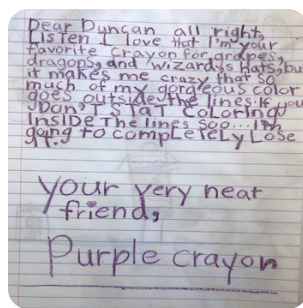 Dear Duncan all right,
Listen I love that I'm your
favorite crayon for grapes,
dragons, and wizards hats, but
it makes me crazy that so
much of my gorgeous color
goes outside the lines. If you
DON'T START COLORING
INSIDE The lines soo... I'm
going to completely Lose
it.
your very neat
friend,
Purple crayon